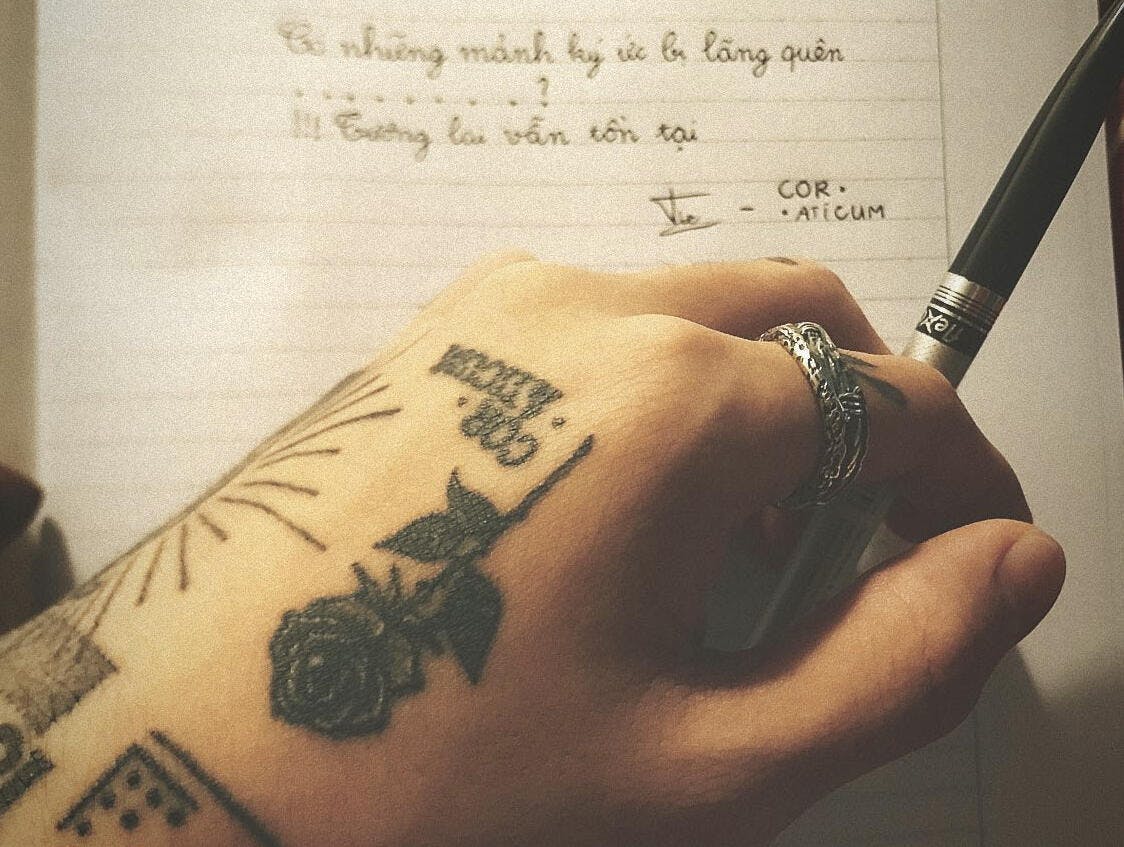 Có những mảnh ký ức bị lãng quên
. . . . . . . . ?
!!! Tương lai vẫn tồn tại
COR.
.ATiCUM
COR.